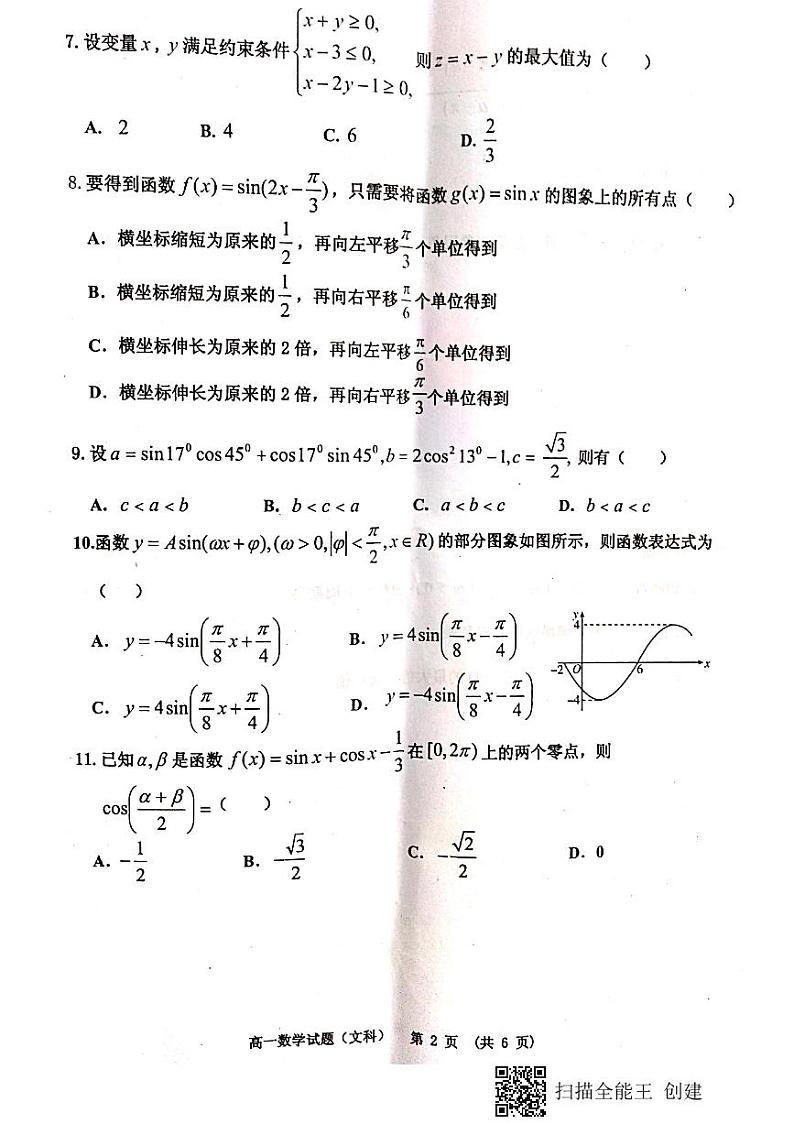 7. 设变量 x，y 满足约束条件 { x+y≥0, x−3≤0, x−2y−1≥0, 则 z = x−y 的最大值为（　　）
A. 2　　B. 4　　C. 6　　D. 2/3
8. 要得到函数 f(x) = sin(2x − π/3)，只需要将函数 g(x) = sin x 的图象上的所有点（　　）
A. 横坐标缩短为原来的 1/2，再向左平移 π/3 个单位得到
B. 横坐标缩短为原来的 1/2，再向右平移 π/6 个单位得到
C. 横坐标伸长为原来的 2 倍，再向左平移 π/6 个单位得到
D. 横坐标伸长为原来的 2 倍，再向右平移 π/3 个单位得到
9. 设 a = sin17⁰ cos45⁰ + cos17⁰ sin45⁰, b = 2cos² 13⁰ − 1, c = √3/2, 则有（　　）
A. c < a < b　　B. b < c < a　　C. a < b < c　　D. b < a < c
10.函数 y = A sin(ωx + φ), (ω > 0, |φ| < π/2, x ∈ R) 的部分图象如图所示，则函数表达式为
（　　）
A. y = −4sin(π/8 x + π/4)　　B. y = 4sin(π/8 x − π/4)
C. y = 4sin(π/8 x + π/4)　　D. y = −4sin(π/8 x − π/4)
y
4
−2 O 6 x
−4
11. 已知 α, β 是函数 f(x) = sin x + cos x − 1/3 在 [0, 2π) 上的两个零点，则
cos((α + β)/2) =（　　）
A. −1/2　　B. −√3/2　　C. −√2/2　　D. 0
高一数学试题（文科）　第 2 页　（共 6 页）
扫描全能王 创建